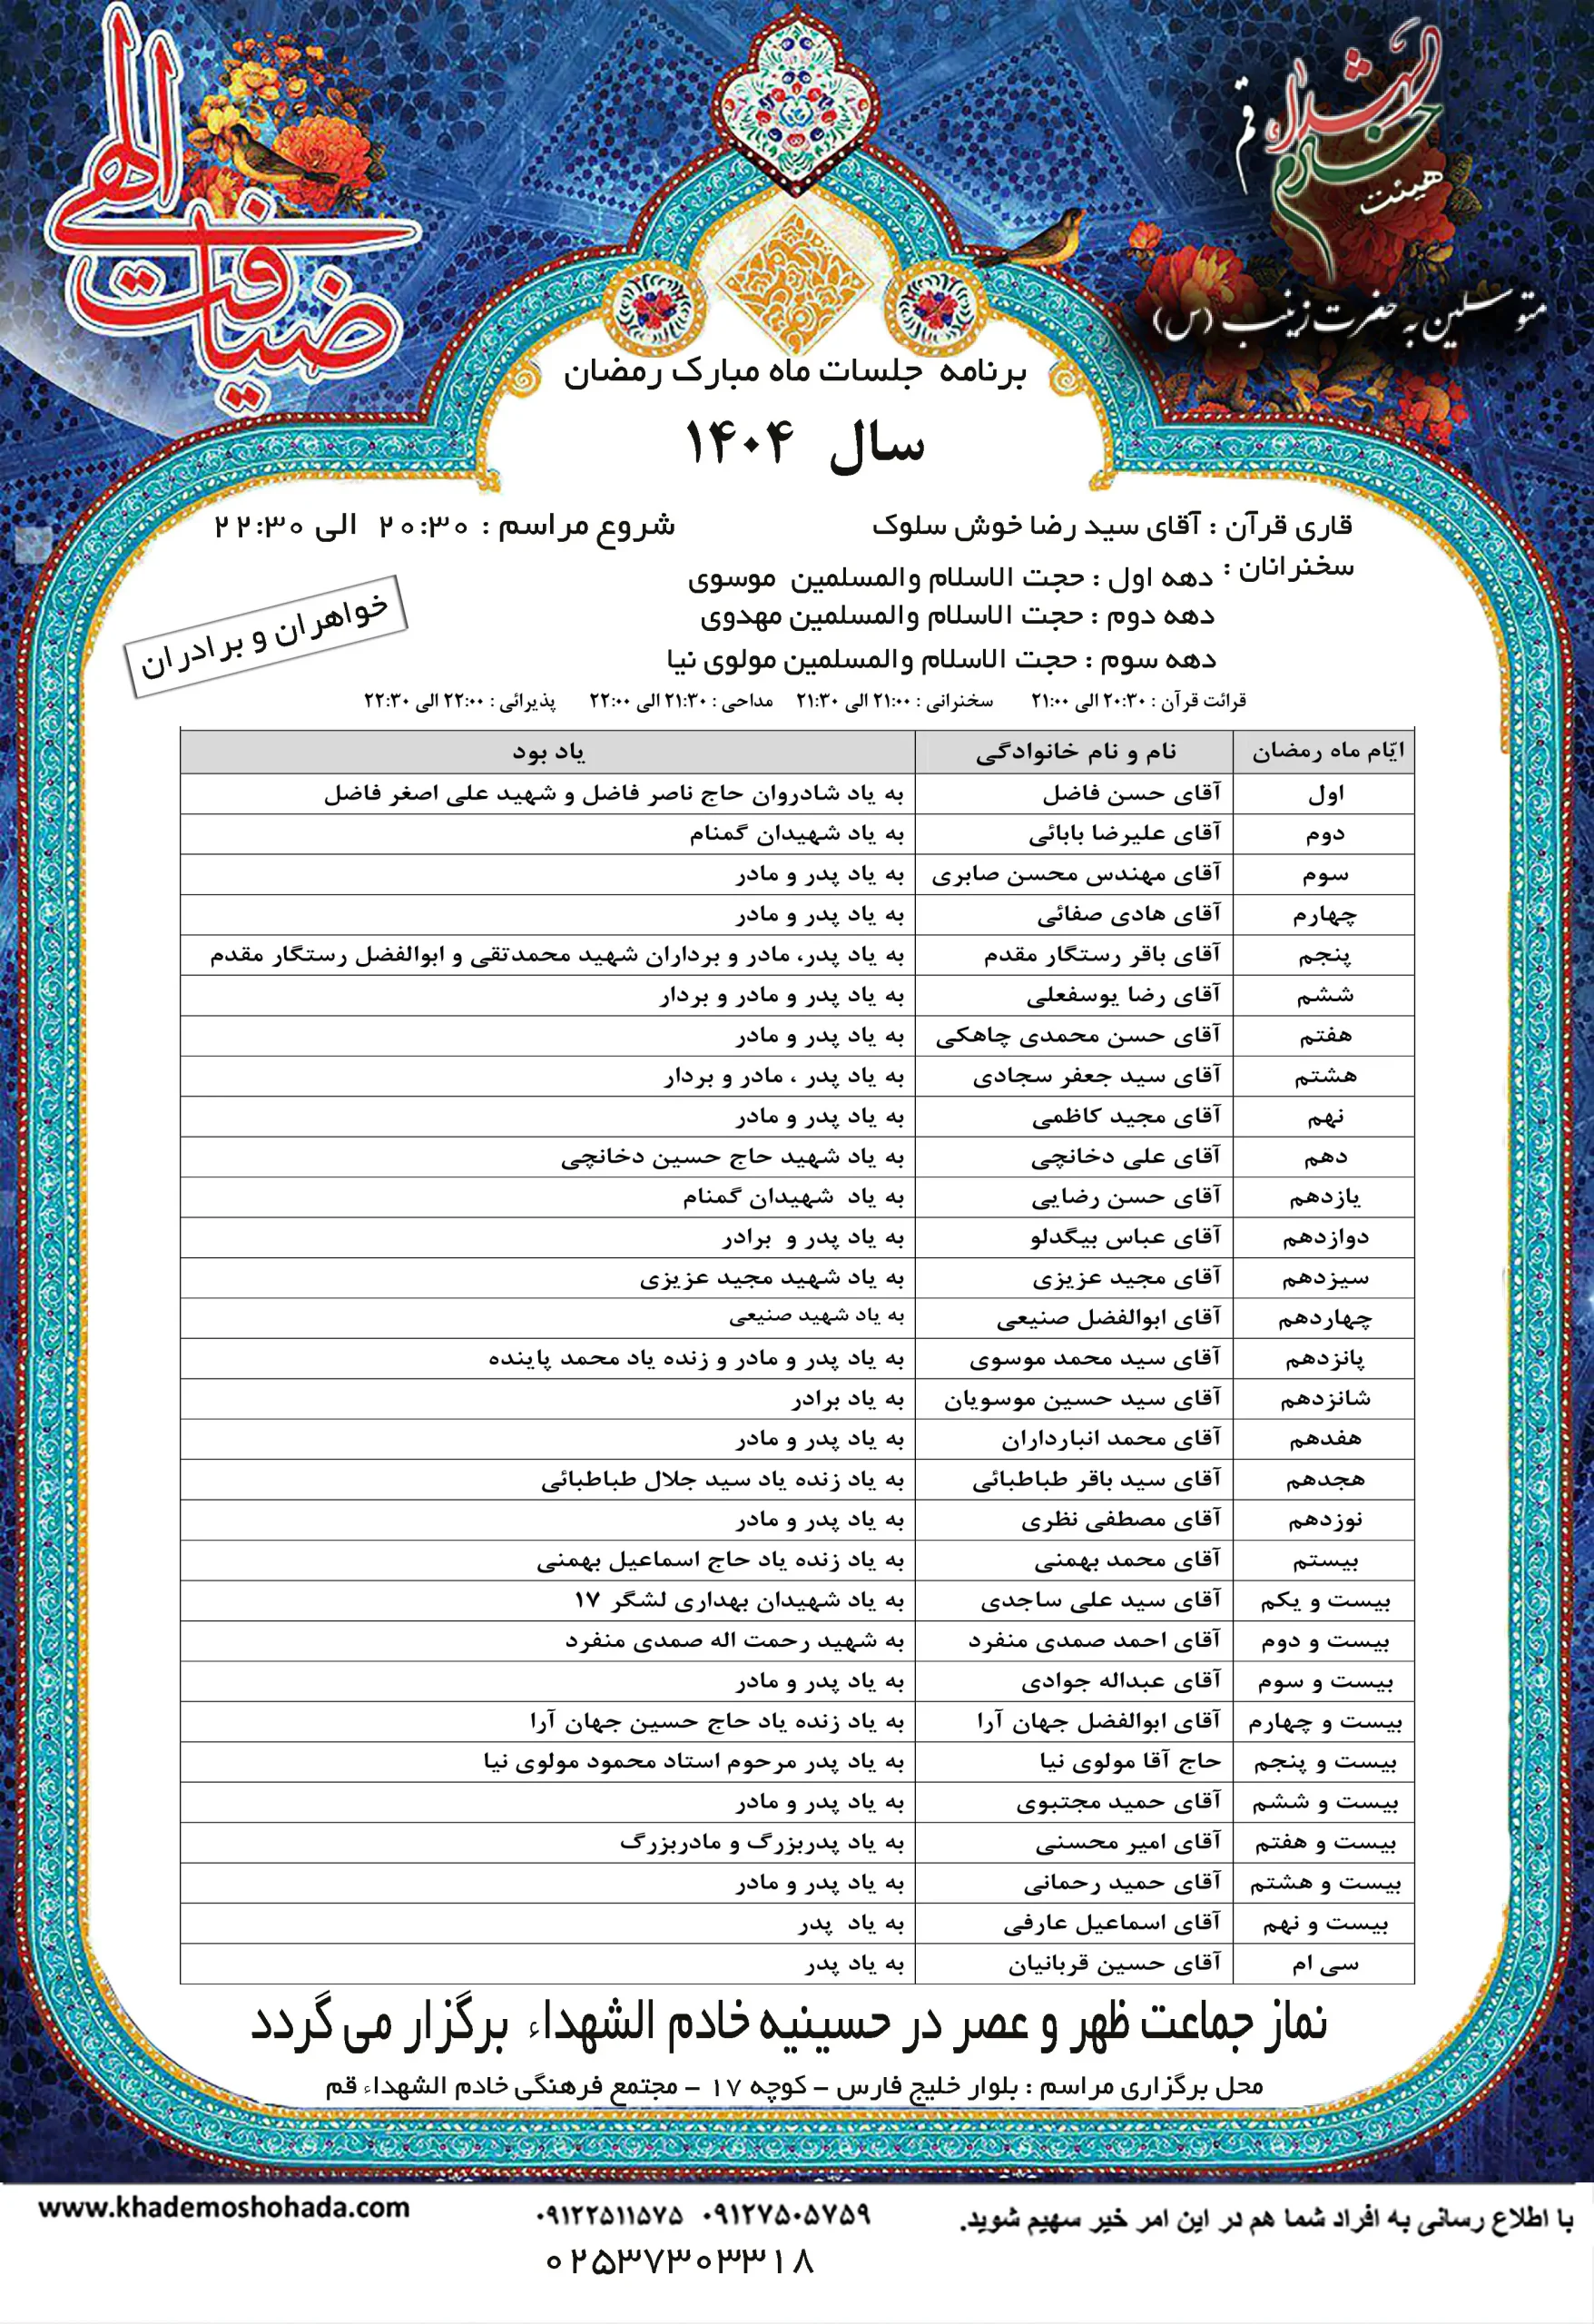 ضیافت الهی
هیئت خادم الشهداء قم
متوسلین به حضرت زینب (س)
برنامه جلسات ماه مبارک رمضان
سال ۱۴۰۴
قاری قرآن : آقای سید رضا خوش سلوک
شروع مراسم : ۲۰:۳۰ الی ۲۲:۳۰
سخنرانان : دهه اول : حجت الاسلام والمسلمین موسوی
دهه دوم : حجت الاسلام والمسلمین مهدوی
دهه سوم : حجت الاسلام والمسلمین مولوی نیا
خواهران و برادران
قرائت قرآن : ۲۰:۳۰ الی ۲۱:۰۰ سخنرانی : ۲۱:۰۰ الی ۲۱:۳۰ مداحی : ۲۱:۳۰ الی ۲۲:۰۰ پذیرائی : ۲۲:۰۰ الی ۲۲:۳۰
ایّام ماه رمضان نام و نام خانوادگی یاد بود
اول آقای حسن فاضل به یاد شادروان حاج ناصر فاضل و شهید علی اصغر فاضل
دوم آقای علیرضا بابائی به یاد شهیدان گمنام
سوم آقای مهندس محسن صابری به یاد پدر و مادر
چهارم آقای هادی صفائی به یاد پدر و مادر
پنجم آقای باقر رستگار مقدم به یاد پدر، مادر و برداران شهید محمدتقی و ابوالفضل رستگار مقدم
ششم آقای رضا یوسفعلی به یاد پدر و مادر و بردار
هفتم آقای حسن محمدی چاهکی به یاد پدر و مادر
هشتم آقای سید جعفر سجادی به یاد پدر ، مادر و بردار
نهم آقای مجید کاظمی به یاد پدر و مادر
دهم آقای علی دخانچی به یاد شهید حاج حسین دخانچی
یازدهم آقای حسن رضایی به یاد شهیدان گمنام
دوازدهم آقای عباس بیگدلو به یاد پدر و برادر
سیزدهم آقای مجید عزیزی به یاد شهید مجید عزیزی
چهاردهم آقای ابوالفضل صنیعی به یاد شهید صنیعی
پانزدهم آقای سید محمد موسوی به یاد پدر و مادر و زنده یاد محمد پاینده
شانزدهم آقای سید حسین موسویان به یاد برادر
هفدهم آقای محمد انبارداران به یاد پدر و مادر
هجدهم آقای سید باقر طباطبائی به یاد زنده یاد سید جلال طباطبائی
نوزدهم آقای مصطفی نظری به یاد پدر و مادر
بیستم آقای محمد بهمنی به یاد زنده یاد حاج اسماعیل بهمنی
بیست و یکم آقای سید علی ساجدی به یاد شهیدان بهداری لشگر ۱۷
بیست و دوم آقای احمد صمدی منفرد به شهید رحمت اله صمدی منفرد
بیست و سوم آقای عبداله جوادی به یاد پدر و مادر
بیست و چهارم آقای ابوالفضل جهان آرا به یاد زنده یاد حاج حسین جهان آرا
بیست و پنجم حاج آقا مولوی نیا به یاد پدر مرحوم استاد محمود مولوی نیا
بیست و ششم آقای حمید مجتبوی به یاد پدر و مادر
بیست و هفتم آقای امیر محسنی به یاد پدربزرگ و مادربزرگ
بیست و هشتم آقای حمید رحمانی به یاد پدر و مادر
بیست و نهم آقای اسماعیل عارفی به یاد پدر
سی ام آقای حسین قربانیان به یاد پدر
نماز جماعت ظهر و عصر در حسینیه خادم الشهداء برگزار می گردد
محل برگزاری مراسم : بلوار خلیج فارس – کوچه ۱۷ – مجتمع فرهنگی خادم الشهداء قم
با اطلاع رسانی به افراد شما هم در این امر خیر سهیم شوید.
۰۹۱۲۲۵۱۱۵۷۵ ۰۹۱۲۷۵۰۵۷۵۹
www.khademoshohada.com
۰۲۵۳۷۳۰۳۳۱۸